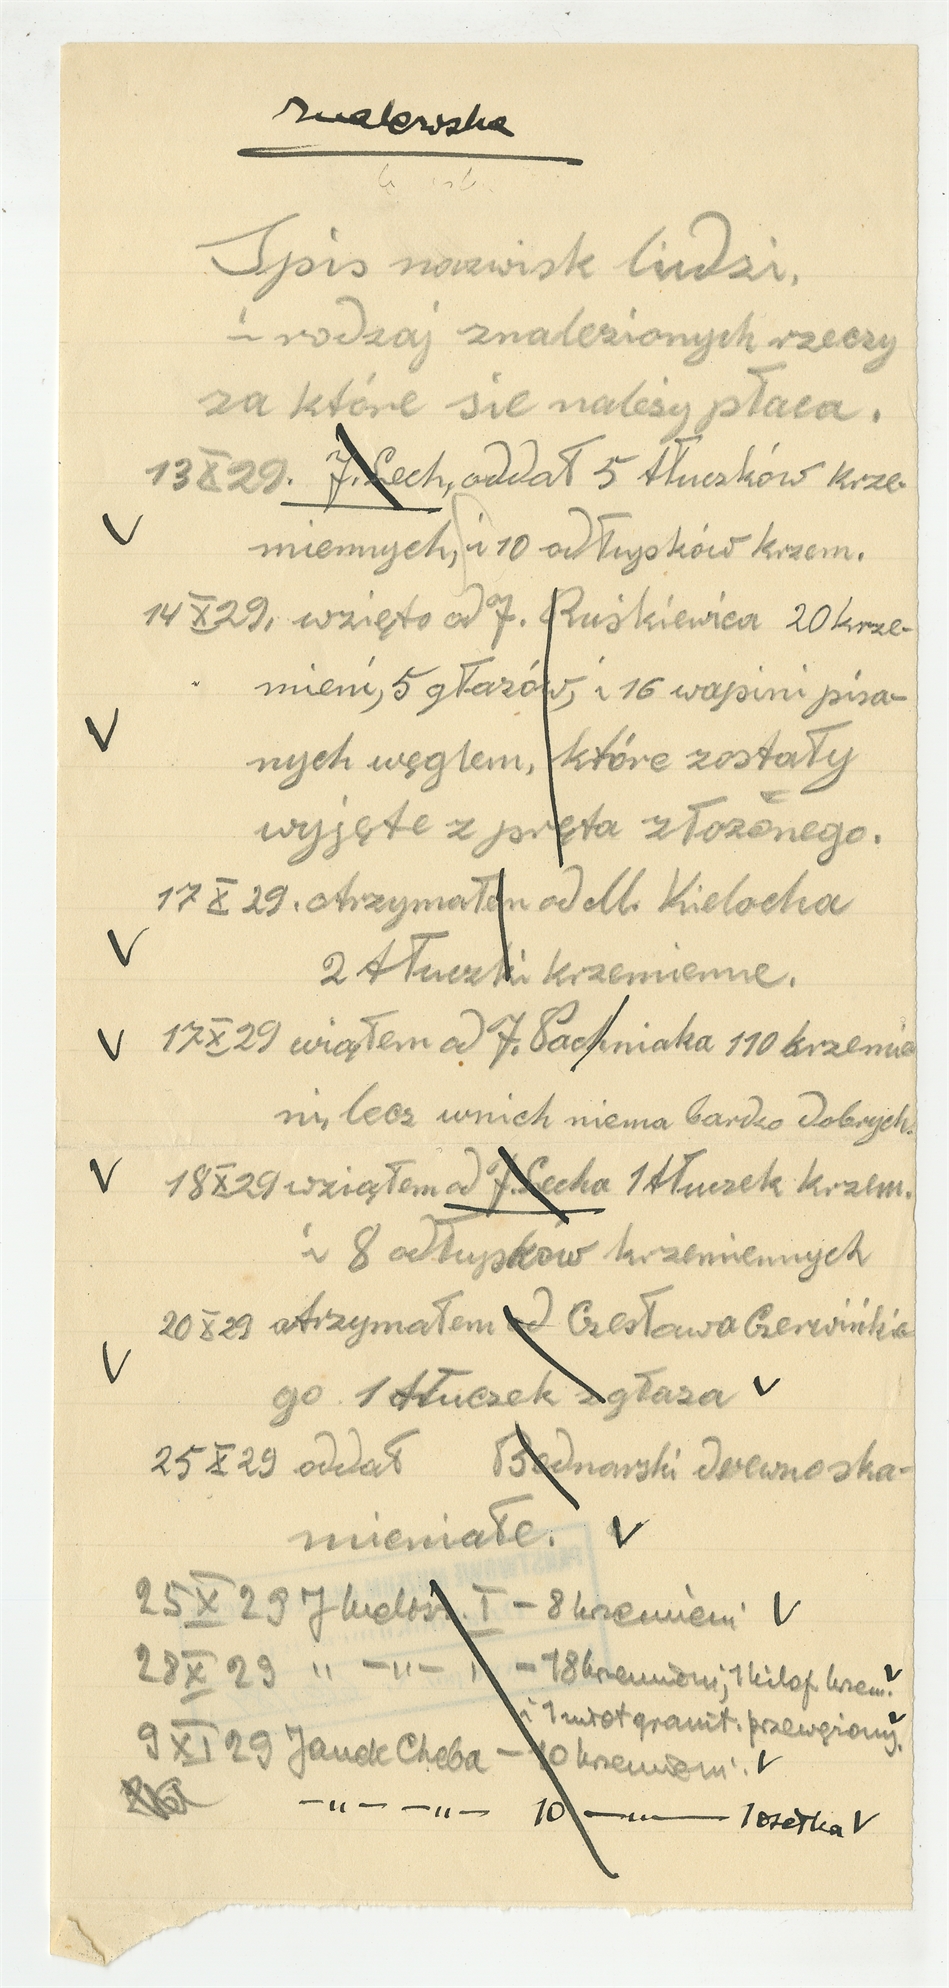 Spis nazwisk ludzi,
i rodzaj znalezionych rzeczy
za które sie należy płaca.
13 X 29. J. Lech, oddał 5 tłuczków krze-
miennych, i 10 odłupków krzem.
14 X 29. wzięto od J. Ruśkiewica 20 krze-
mieni, 5 głazów, i 16 wapini pisa-
nych węglem, które zostały
wyjęte z pręta złożonego.
17 X 29. otrzymałem od M. Kielocha
2 tłuczki krzemienne.
17 X 29 wiąłem od J. Pachniaka 110 krzemie
ni, lecz wnich niema bardzo dobrych.
18 X 29 wziąłem od J. Lecha 1 tłuczek krzem.
i 8 odłupków krzemiennych
20 X 29 otrzymałem od Czesława Czerwińskie
go 1 tłuczek z głaza
25 X 29 oddał Bednarski drewno ska-
mieniałe.
25 X 29 J I – 8 krzemieni
28 X 29 " –"– " – 18 krzemieni, 1 kilof krzem.
i 1 młot granit. przewęziony.
9 XI 29 Janek Cheba – 10 krzemieni.
–"– –"– 10 –"– 1 osełka